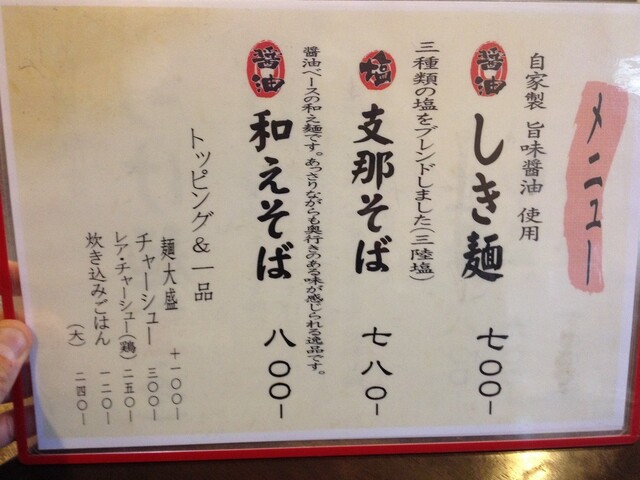 メニュー
自家製 旨味醤油 使用
醤油 しき麺 七〇〇-
三種類の塩をブレンドしました(三陸塩)
塩 支那そば 七八〇-
醤油ベースの和え麺です。あっさりながらも奥行きのある味が感じられる逸品です。
醤油 和えそば 八〇〇-
トッピング&一品
麺大盛 +一〇〇-
チャーシュー 三〇〇-
レア・チャーシュー(鶏) 二五〇-
炊き込みごはん 一二〇-
(大) 二四〇-